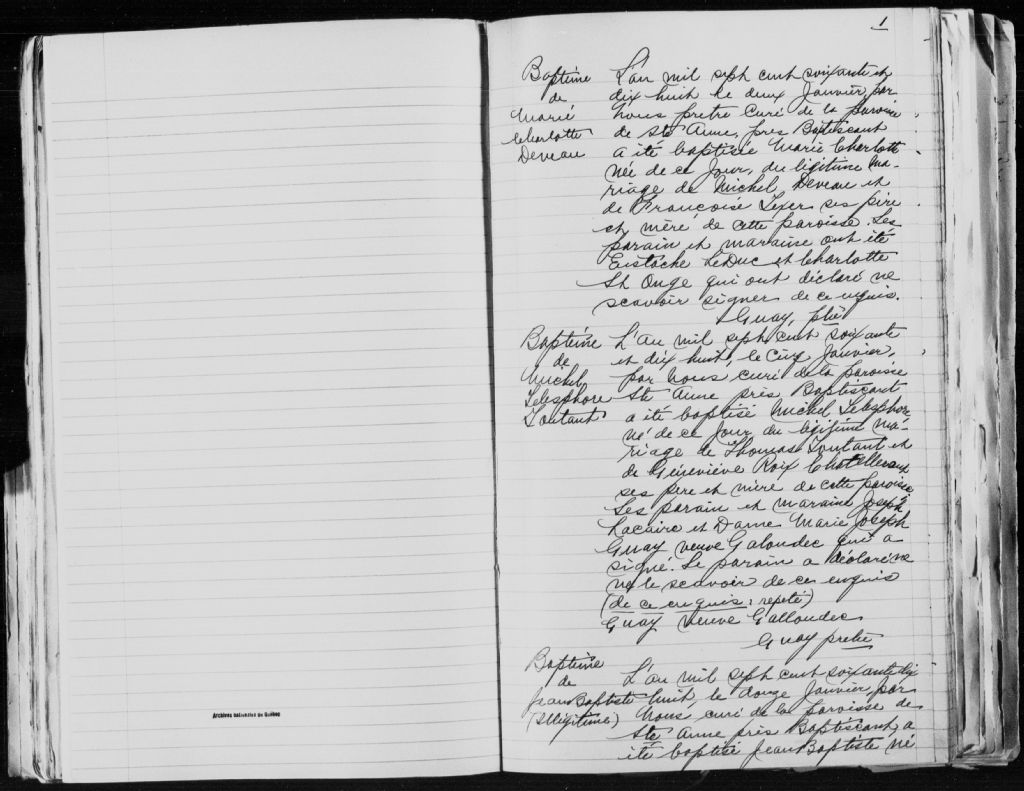 Archives nationales du Québec
1
Baptême
de
Marie
Charlotte
Deveau
L'an mil sept cent soixante et
dix huit le deux Janvier, par
nous pretre curé de la paroisse
de Ste Anne, pres Batiscant
a été baptisée Marie Charlott
née de ce Jour, du légitime ma-
riage de Michel Deveau et
de Françoise Texer ses père
et mère de cette paroisse. Les
parain et maraine ont été
Eustache LeDuc et Charlotte
St Onge qui ont déclaré ne
scavoir signer de ce enquis.
Guay, ptre
Baptême
de
Michel
Telesphore
Toutant
L'an mil sept cent soixante
et dix huit, le Cinq Janvier,
par nous curé de la paroisse
Ste Anne près Baptiscant
a été baptisé Michel Telesphor
né de ce jour du légitime ma-
riage de Thomas Toutant et
de Géneviève Roix Chatellereaux
ses pere et mère de cette paroisse.
Les parain et maraine Joseph
Lacaire et Dame Marie Joseph
Guay veuve Galoudec qui a
signé. Le parain a déclaré ne
ne le scavoir de ce enquis
(de ce enquis: repeté)
Guay veuve Galloudec
Guay pretre
Baptême
de
Jean Baptiste
(Illégitime)
L'an mil sept cent soixante dix
huit, le douze Janvier, par
nous, curé de la paroisse de
Ste Anne près Baptiscant, a
été baptisé Jean Baptiste né